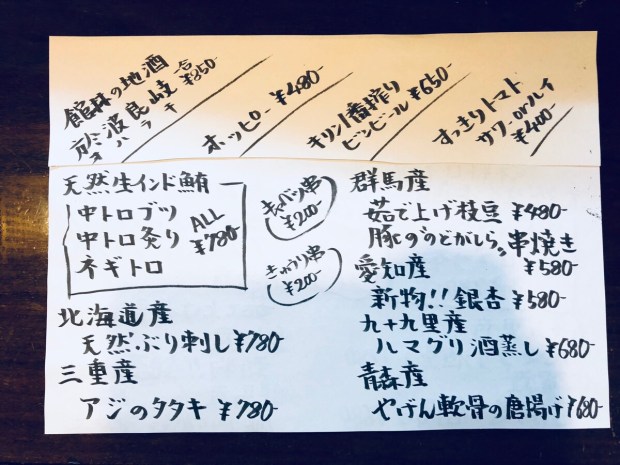 館林の地酒
於波良岐
オハラキ
一合
¥850
ホッピー ¥480-
キリン1番搾り
ビンビール ¥650-
すっきりトマト
サワー or ハイ
¥400-
天然生インド鮪
中トロブツ
中トロ炙り
ネギトロ
ALL
¥780-
キャベツ串
¥200-
きゅうり串
¥200-
北海道産
天然ぶり刺し ¥780-
三重産
アジのタタキ ¥780-
群馬産
茹で上げ枝豆 ¥480-
豚の"のどがしら"串焼き
¥580-
愛知産
新物!!銀杏 ¥580-
九十九里産
ハマグリ酒蒸し ¥680-
青森産
やげん軟骨の唐揚げ ¥680-